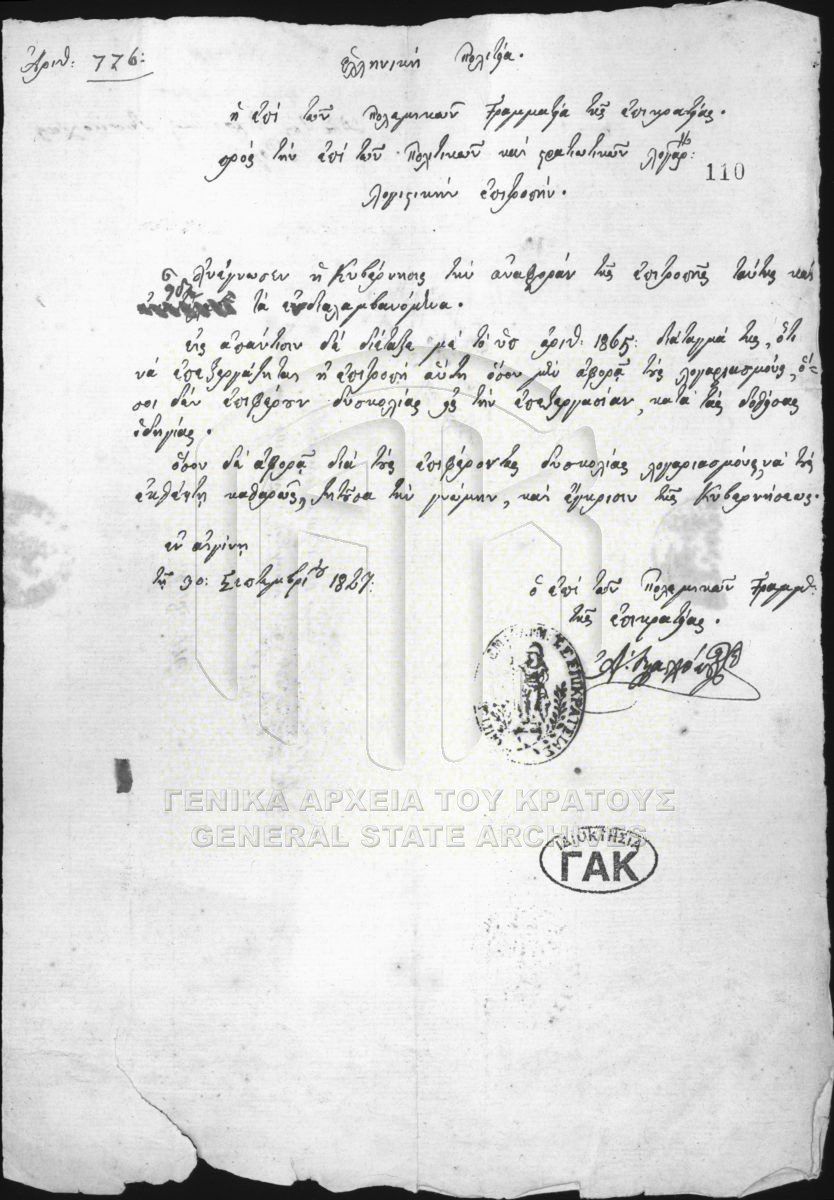 Ἀριθ: 776: Ἑλληνικὴ Πολιτεία.
ἡ ἐπὶ τῶν Πολεμικῶν Γραμματεία τῆς ἐπικρατείας.
πρὸς τὴν ἐπὶ τῶν πολιτικῶν καὶ στρατιωτικῶν λογαρ:
110
λογιστικὴν ἐπιτροπήν.
Ἀνέγνωσεν ἡ Κυβέρνησις τὴν ἀναφορὰν τῆς ἐπιτροπῆς ταύτης καὶ
τὰ ἐνδιαλαμβανόμενα.
εἰς ἀπάντησιν δὲ διέταξε μὲ τὸ ὑπ ἀριθ: 1865: διάταγμά της, ὅτι
νὰ ἐπεξεργάζηται ἡ ἐπιτροπὴ αὕτη ὅσον μὲν ἀφορᾷ τοὺς λογαριασμούς, ὅ-
σοι δὲν ἐπιφέρουν δυσκολίας εἰς τὴν ἐπεξεργασίαν, κατὰ τὰς δοθείσας
ὁδηγίας.
ὅσον δὲ ἀφορᾷ διὰ τοὺς ἐπιφέροντας δυσκολίας λογαριασμούς, νὰ τοὺς
ἐκθέτῃ καθαρῶς, ζητοῦσα τὴν γνώμην, καὶ ἔγκρισιν τῆς Κυβερνήσεως.
ἐν αἰγίνῃ
τῇ 30: Σεπτεμβρίου 1827: ὁ ἐπὶ τῶν Πολεμικῶν Γραμμ:
τῆς ἐπικρατείας.
ΕΠΙΚΡΑΤΕΙΑΣ
ΓΕΝΙΚΑ ΑΡΧΕΙΑ ΤΟΥ ΚΡΑΤΟΥΣ
GENERAL STATE ARCHIVES
ΙΔΙΟΚΤΗΣΙΑ
ΓΑΚ